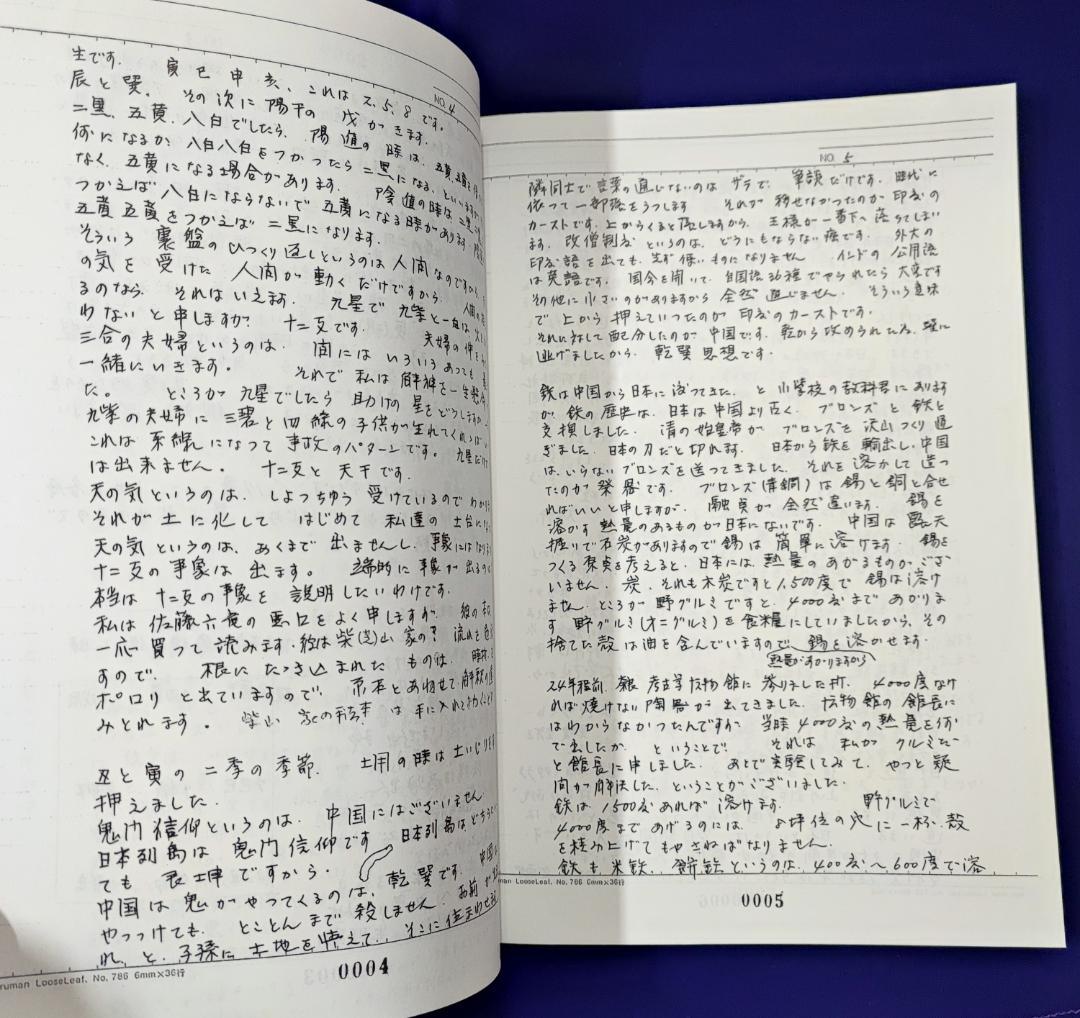 NO. 4
生です。
辰と巽、 寅巳申亥、これは 2、5、8 です。
その次に 陽干の 戊がきます。
二黒、五黄、八白でしたら、陽遁の時は、五黄、五黄を
何になるか 八白八白をつかつたら 二黒になる、といいますが
なく、五黄になる場合があります。 陰遁の時は、二黒
つかえば 八白にならないで 五黄になる時があります
五黄五黄をつかえば 二黒になります。
そういう 裏盤の ひつくり返しというのは 人間なのですから
の気を受けた 人間が動くだけですから、人間の
るのなら、それはいえます。 九星で 九紫と一白は
わないと申しますか? 十二支です。 夫婦の仲を
三合の夫婦というのは、間には いろいろあっても
一緒にいきます。 それで私は 解神を一生懸命
た。 ところが 九星でしたら 助けの星をどうしますか
九紫の夫婦に 三碧と四緑の子供が生れてくれれば
これは 系線になって 事故のパターンです。九星だけ
は出来ません。 十二支と天干です。
天の気というのは、しよつちゆう受けているのでわかり
それが土に化して はじめて 私達の土台に
天の気というのは、あくまで 出ませんし、事象にはなりま
十二支の事象は 出ます。 端的に事象が出るのく
本当は 十二支の事象を 説明したいわけです。
私は 佐藤六竜の悪口をよく申しますが、彼の本
一応買って読みます。彼は柴(芝)山家の? 流れを
すので、 根にたつき込まれたものは、時折
ポロリと出ていますので、 原本とあわせて、解釈の
みとれます。 柴山家の秘本は 手に入れてうれしくて
丑と寅の 二季の季節、 土用の時は 土いじりを
押えました。
鬼門信仰というのは、中国にはございません
日本列島は 鬼門信仰です 日本列島は、どちら
ても 艮坤ですから、
中国は 鬼がやつてくるのは、乾巽です。 中国
やつつけても、とことんまで 殺しません。お前が
れ、と 子孫に 土地を与えて、そこに住まわせ
ruman LooseLeaf. No. 786 6mm×36行
0004
NO. 5
隣同士で言葉の通じないのは ザラで、筆談だけです。時代に
依って一部落をうつします それが 移せなかつたのが 印度の
カーストです。上からくると落しますから、王様が一番下へ落ちてしまい
ます。改僧制度というのは、どうにもならない癌です。 外大の
印度語を出ても、先ず使いものになりません インドの 公用語
は英語です。 国会を開いて、自国語36種でやられたら大変です
その他に小さいのがありますから 全然 通じません。そういう意味
で 上から押えていつたのが 印度のカーストです。
それに対して配分したのが中国です。乾から攻められた為、巽に
逃げましたから、乾巽思想です。
鉄は中国から日本に渡ってきた、と 小学校の教科書にあります
が、鉄の歴史は、日本は中国より古く、ブロンズと鉄と
交換しました。 清の始皇帝が ブロンズを沢山つくり過
ぎました、日本の刀だと切れます。 日本から鉄を輸出し、中国
は、いらないブロンズを送つてきました。それを溶かして造っ
たのが祭器です。 ブロンズ(青銅)は錫と銅と合せ
ればいいと申しますが、 融点が全然違います。 錫を
溶かす熱量のあるものが日本にないです。中国は露天
掘りで石炭がありますので錫は簡単に溶けます。錫を
つくる原点を考えると、日本には、熱量のあがるものがござ
いません。炭、それも木炭ですと1,500度で 錫は溶け
ません。ところが野グルミですと、4000度まであがりま
す 野グルミ(オニグルミ)を食糧にしていましたから、その
捨てた殻は油を含んでいますので、錫を溶かせます。
熱量があがりますから
24年程前、 考古学博物館に参りました折、4000度なけ
れば焼けない陶器が出てきました。博物館の館長に
はわからなかつたんですが 当時4000度の熱量を何
で出したか、ということで、 それは 私が クルミだ
と館長に申しました。あとで実験してみて、やつと疑
問が解決した、ということがございました。
鉄は 1500度あれば溶けます。 野グルミで
4000度まであげるのには、 8坪位の穴に一杯、殻
を積み上げてもやさねばなりません。
鉄も米鉄、餅鉄というのは、400度〜600度で溶
ruman LooseLeaf. No. 786 6mm×36行
0005